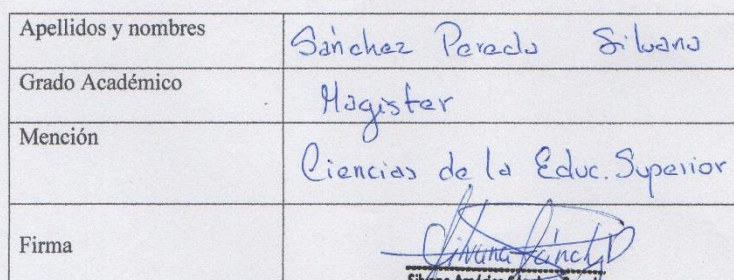 Apellidos y nombres Sánchez Pereda Silvana
Grado Académico Magister
Mención Ciencias de la Educ. Superior
Firma Silvana Sánchez
Silvana